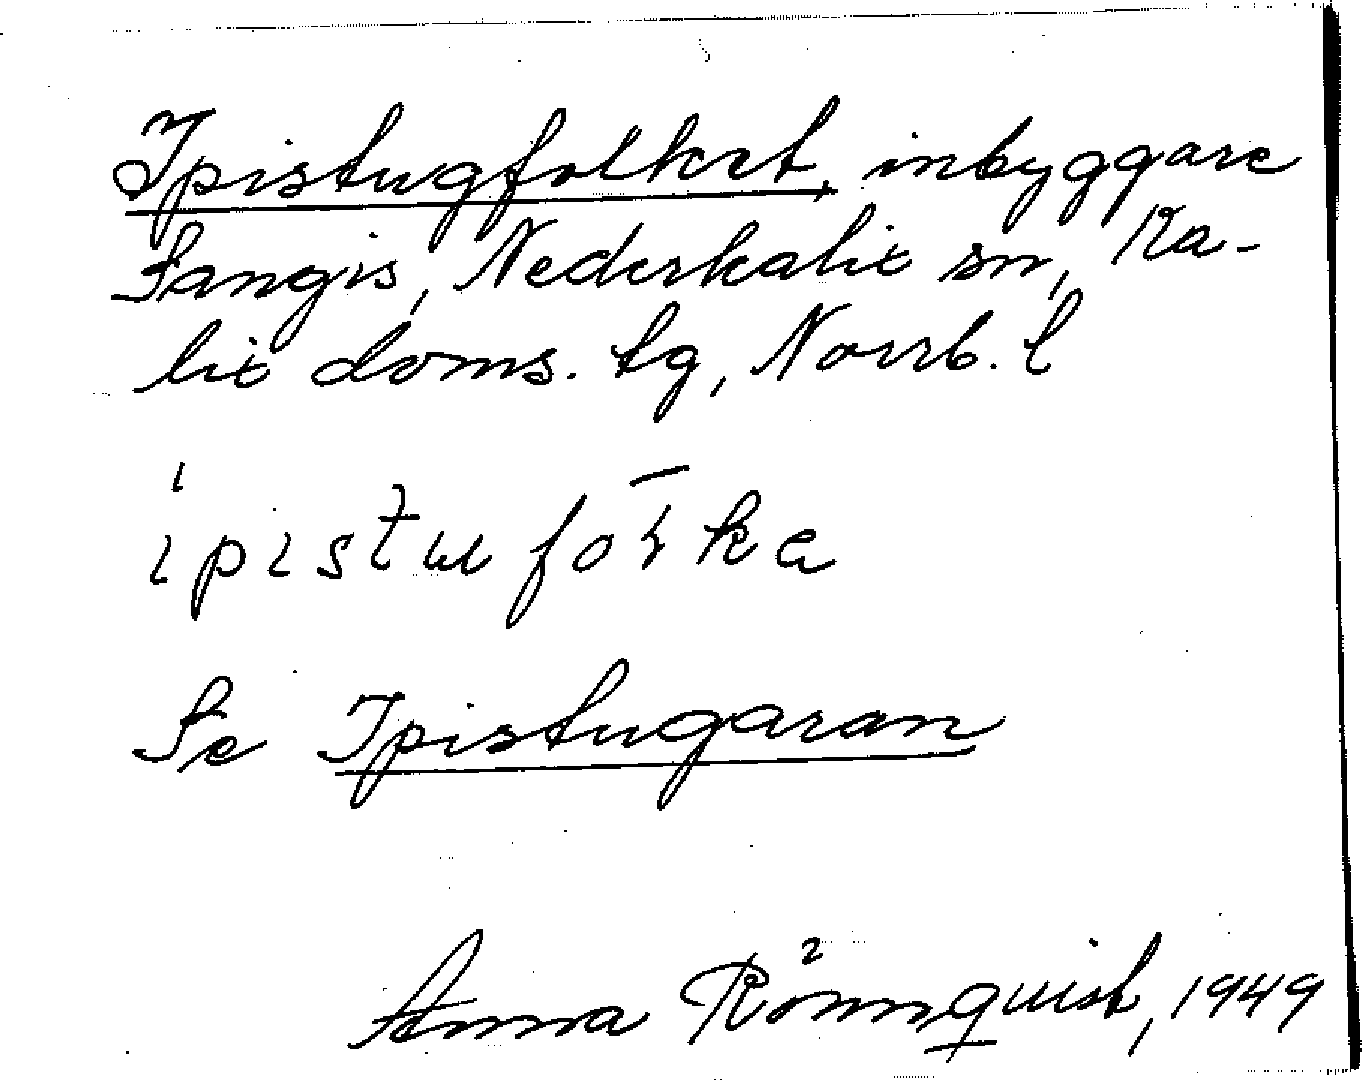 Ipistugfolket, inbyggare
Sangis, Nederkalix sn, Ka-
lix doms. tg, Norrb. l
Se Ipistugaran
Anna Rönnquist, 1949